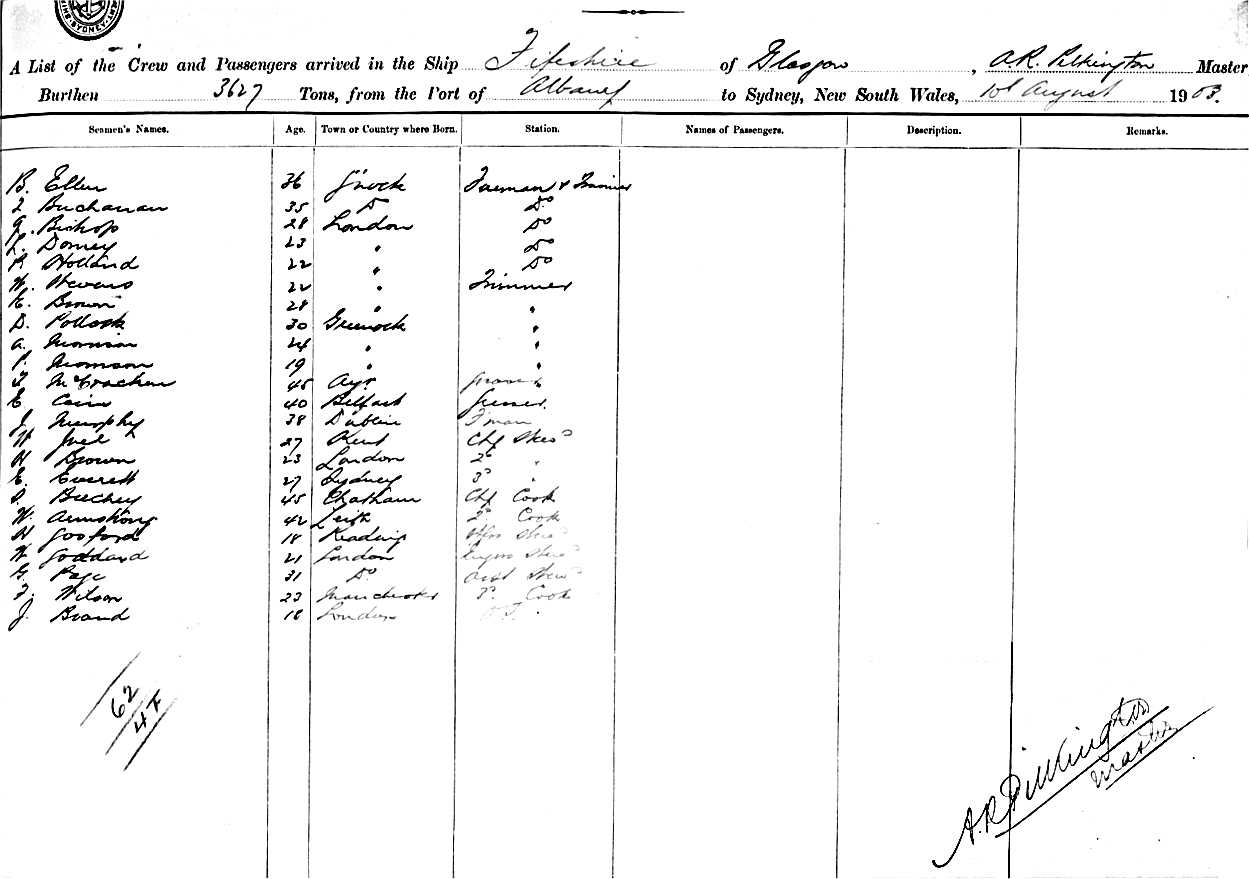 SYDNEY
A List of the Crew and Passengers arrived in the Ship Fifeshire of Glasgow, A.R. Pilkington Master
Burthen 3627 Tons, from the Port of Albany to Sydney, New South Wales, 1st August 1903.
Seamen's Names. Age. Town or Country where Born. Station. Names of Passengers. Description. Remarks.
B. Ellen 36 G'nock Fireman & Trimmer
Buchanan 35 Do Do
G. Bishop 28 London Do
Dorney 23 " Do
R Holland 22 " Do
W. Stevens 22 " Trimmer
E. Brown 28 " "
D. Pollock 30 Greenock "
A. Morrison 24 " "
P. Thomson 19 " "
McCracken 45 Ayr
E Cairns 40 Belfast Greaser
J Murphy 38 Dublin F'man
W 27 Kent Chf Stewd
H Brown 23 London 2d "
E. Everett 27 Sydney 3d "
Beechey 45 Chatham Chf Cook
W. Armstrong 42 Leith 2d Cook
H Gosford 18 Reading Stewd
W Goddard 21 London Engrs Stewd
G. Page 31 Do Asst Stewd
F. Wilson 23 Manchester 3d Cook
J. Brand 18 London
62
47
A.R. Pilkington
Master